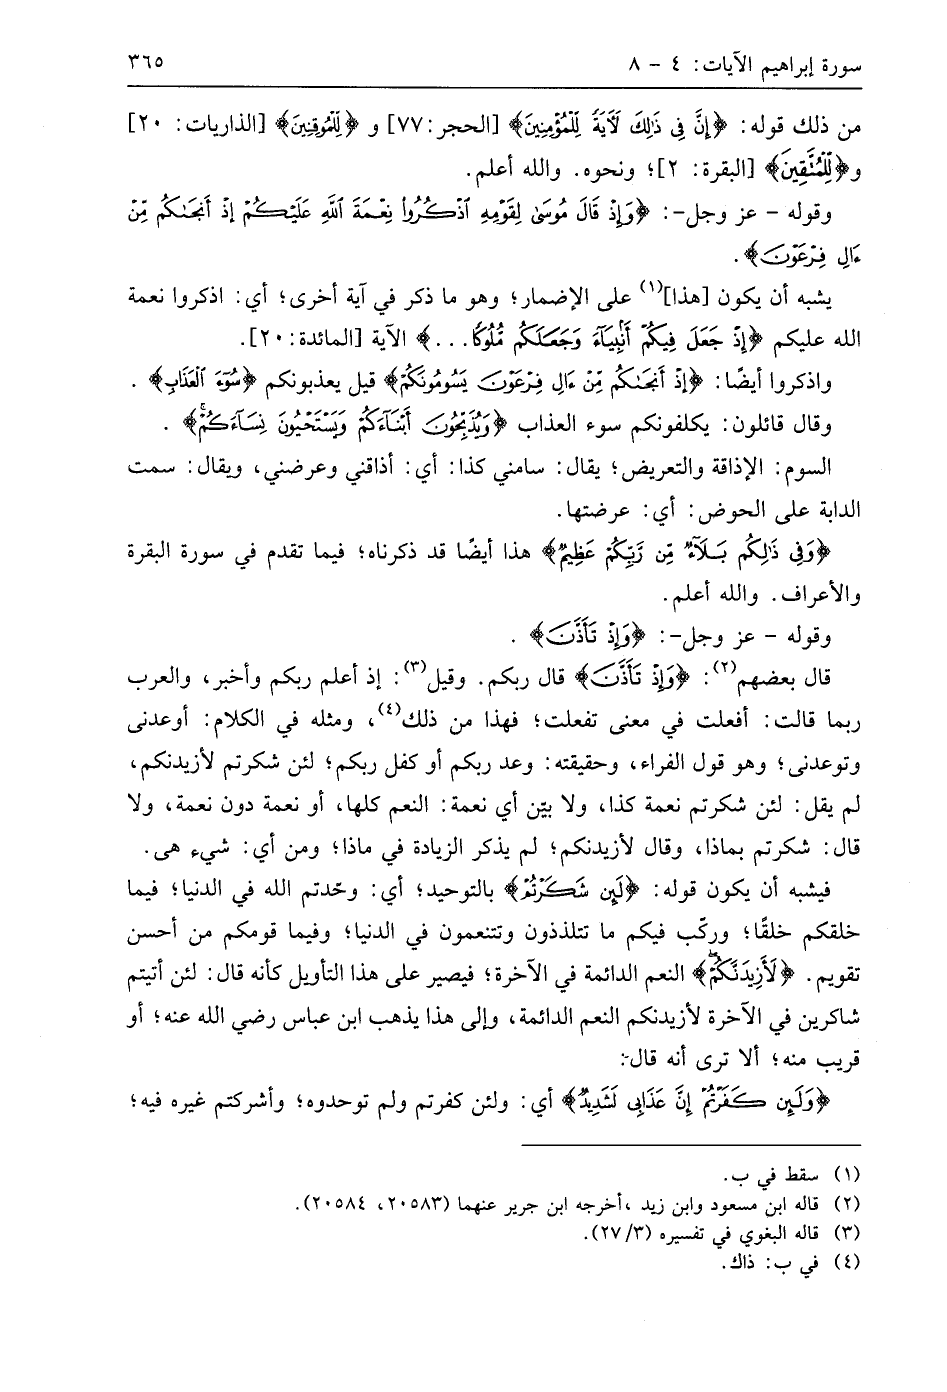 سورة إبراهيم الآيات: ٤ - ٨ ٣٦٥
من ذلك قوله: ﴿إِنَّ فِى ذَٰلِكَ لَآيَةً لِّلْمُؤْمِنِينَ﴾ [الحجر: ٧٧] و ﴿لِّلْمُوقِنِينَ﴾ [الذاريات: ٢٠]
و﴿لِّلْمُتَّقِينَ﴾ [البقرة: ٢]؛ ونحوه. والله أعلم.
وقوله - عز وجل-: ﴿وَإِذْ قَالَ مُوسَىٰ لِقَوْمِهِ ٱذْكُرُوا۟ نِعْمَةَ ٱللَّهِ عَلَيْكُمْ إِذْ أَنجَىٰكُم مِّنْ
ءَالِ فِرْعَوْنَ﴾.
يشبه أن يكون [هذا](١) على الإضمار؛ وهو ما ذكر في آية أخرى؛ أي: اذكروا نعمة
الله عليكم ﴿إِذْ جَعَلَ فِيكُمْ أَنۢبِيَآءَ وَجَعَلَكُم مُّلُوكًا...﴾ الآية [المائدة: ٢٠].
واذكروا أيضًا: ﴿إِذْ أَنجَىٰكُم مِّنْ ءَالِ فِرْعَوْنَ يَسُومُونَكُمْ﴾ قيل يعذبونكم ﴿سُوٓءَ ٱلْعَذَابِ﴾ .
وقال قائلون: يكلفونكم سوء العذاب ﴿وَيُذَبِّحُونَ أَبْنَآءَكُمْ وَيَسْتَحْيُونَ نِسَآءَكُمْ ۚ﴾ .
السوم: الإذاقة والتعريض؛ يقال: سامني كذا: أي: أذاقني وعرضني، ويقال: سمت
الدابة على الحوض: أي: عرضتها.
﴿وَفِى ذَٰلِكُم بَلَآءٌ مِّن رَّبِّكُمْ عَظِيمٌ﴾ هذا أيضًا قد ذكرناه؛ فيما تقدم في سورة البقرة
والأعراف. والله أعلم.
وقوله - عز وجل-: ﴿وَإِذْ تَأَذَّنَ﴾ .
قال بعضهم(٢): ﴿وَإِذْ تَأَذَّنَ﴾ قال ربكم. وقيل(٣): إذ أعلم ربكم وأخبر، والعرب
ربما قالت: أفعلت في معنى تفعلت؛ فهذا من ذلك(٤)، ومثله في الكلام: أوعدنى
وتوعدنى؛ وهو قول الفراء، وحقيقته: وعد ربكم أو كفل ربكم؛ لئن شكرتم لأزيدنكم،
لم يقل: لئن شكرتم نعمة كذا، ولا بيّن أي نعمة: النعم كلها، أو نعمة دون نعمة، ولا
قال: شكرتم بماذا، وقال لأزيدنكم؛ لم يذكر الزيادة في ماذا؛ ومن أي: شيء هى.
فيشبه أن يكون قوله: ﴿لَئِن شَكَرْتُمْ﴾ بالتوحيد؛ أي: وحّدتم الله في الدنيا؛ فيما
خلقكم خلقًا؛ وركّب فيكم ما تتلذذون وتتنعمون في الدنيا؛ وفيما قومكم من أحسن
تقويم. ﴿لَأَزِيدَنَّكُمْ ۖ﴾ النعم الدائمة في الآخرة؛ فيصير على هذا التأويل كأنه قال: لئن أتيتم
شاكرين في الآخرة لأزيدنكم النعم الدائمة، وإلى هذا يذهب ابن عباس رضي الله عنه؛ أو
قريب منه؛ ألا ترى أنه قال:
﴿وَلَئِن كَفَرْتُمْ إِنَّ عَذَابِى لَشَدِيدٌ﴾ أي: ولئن كفرتم ولم توحدوه؛ وأشركتم غيره فيه؛
(١) سقط في ب.
(٢) قاله ابن مسعود وابن زيد ،أخرجه ابن جرير عنهما (٢٠٥٨٣، ٢٠٥٨٤).
(٣) قاله البغوي في تفسيره (٣/ ٢٧).
(٤) في ب: ذاك.